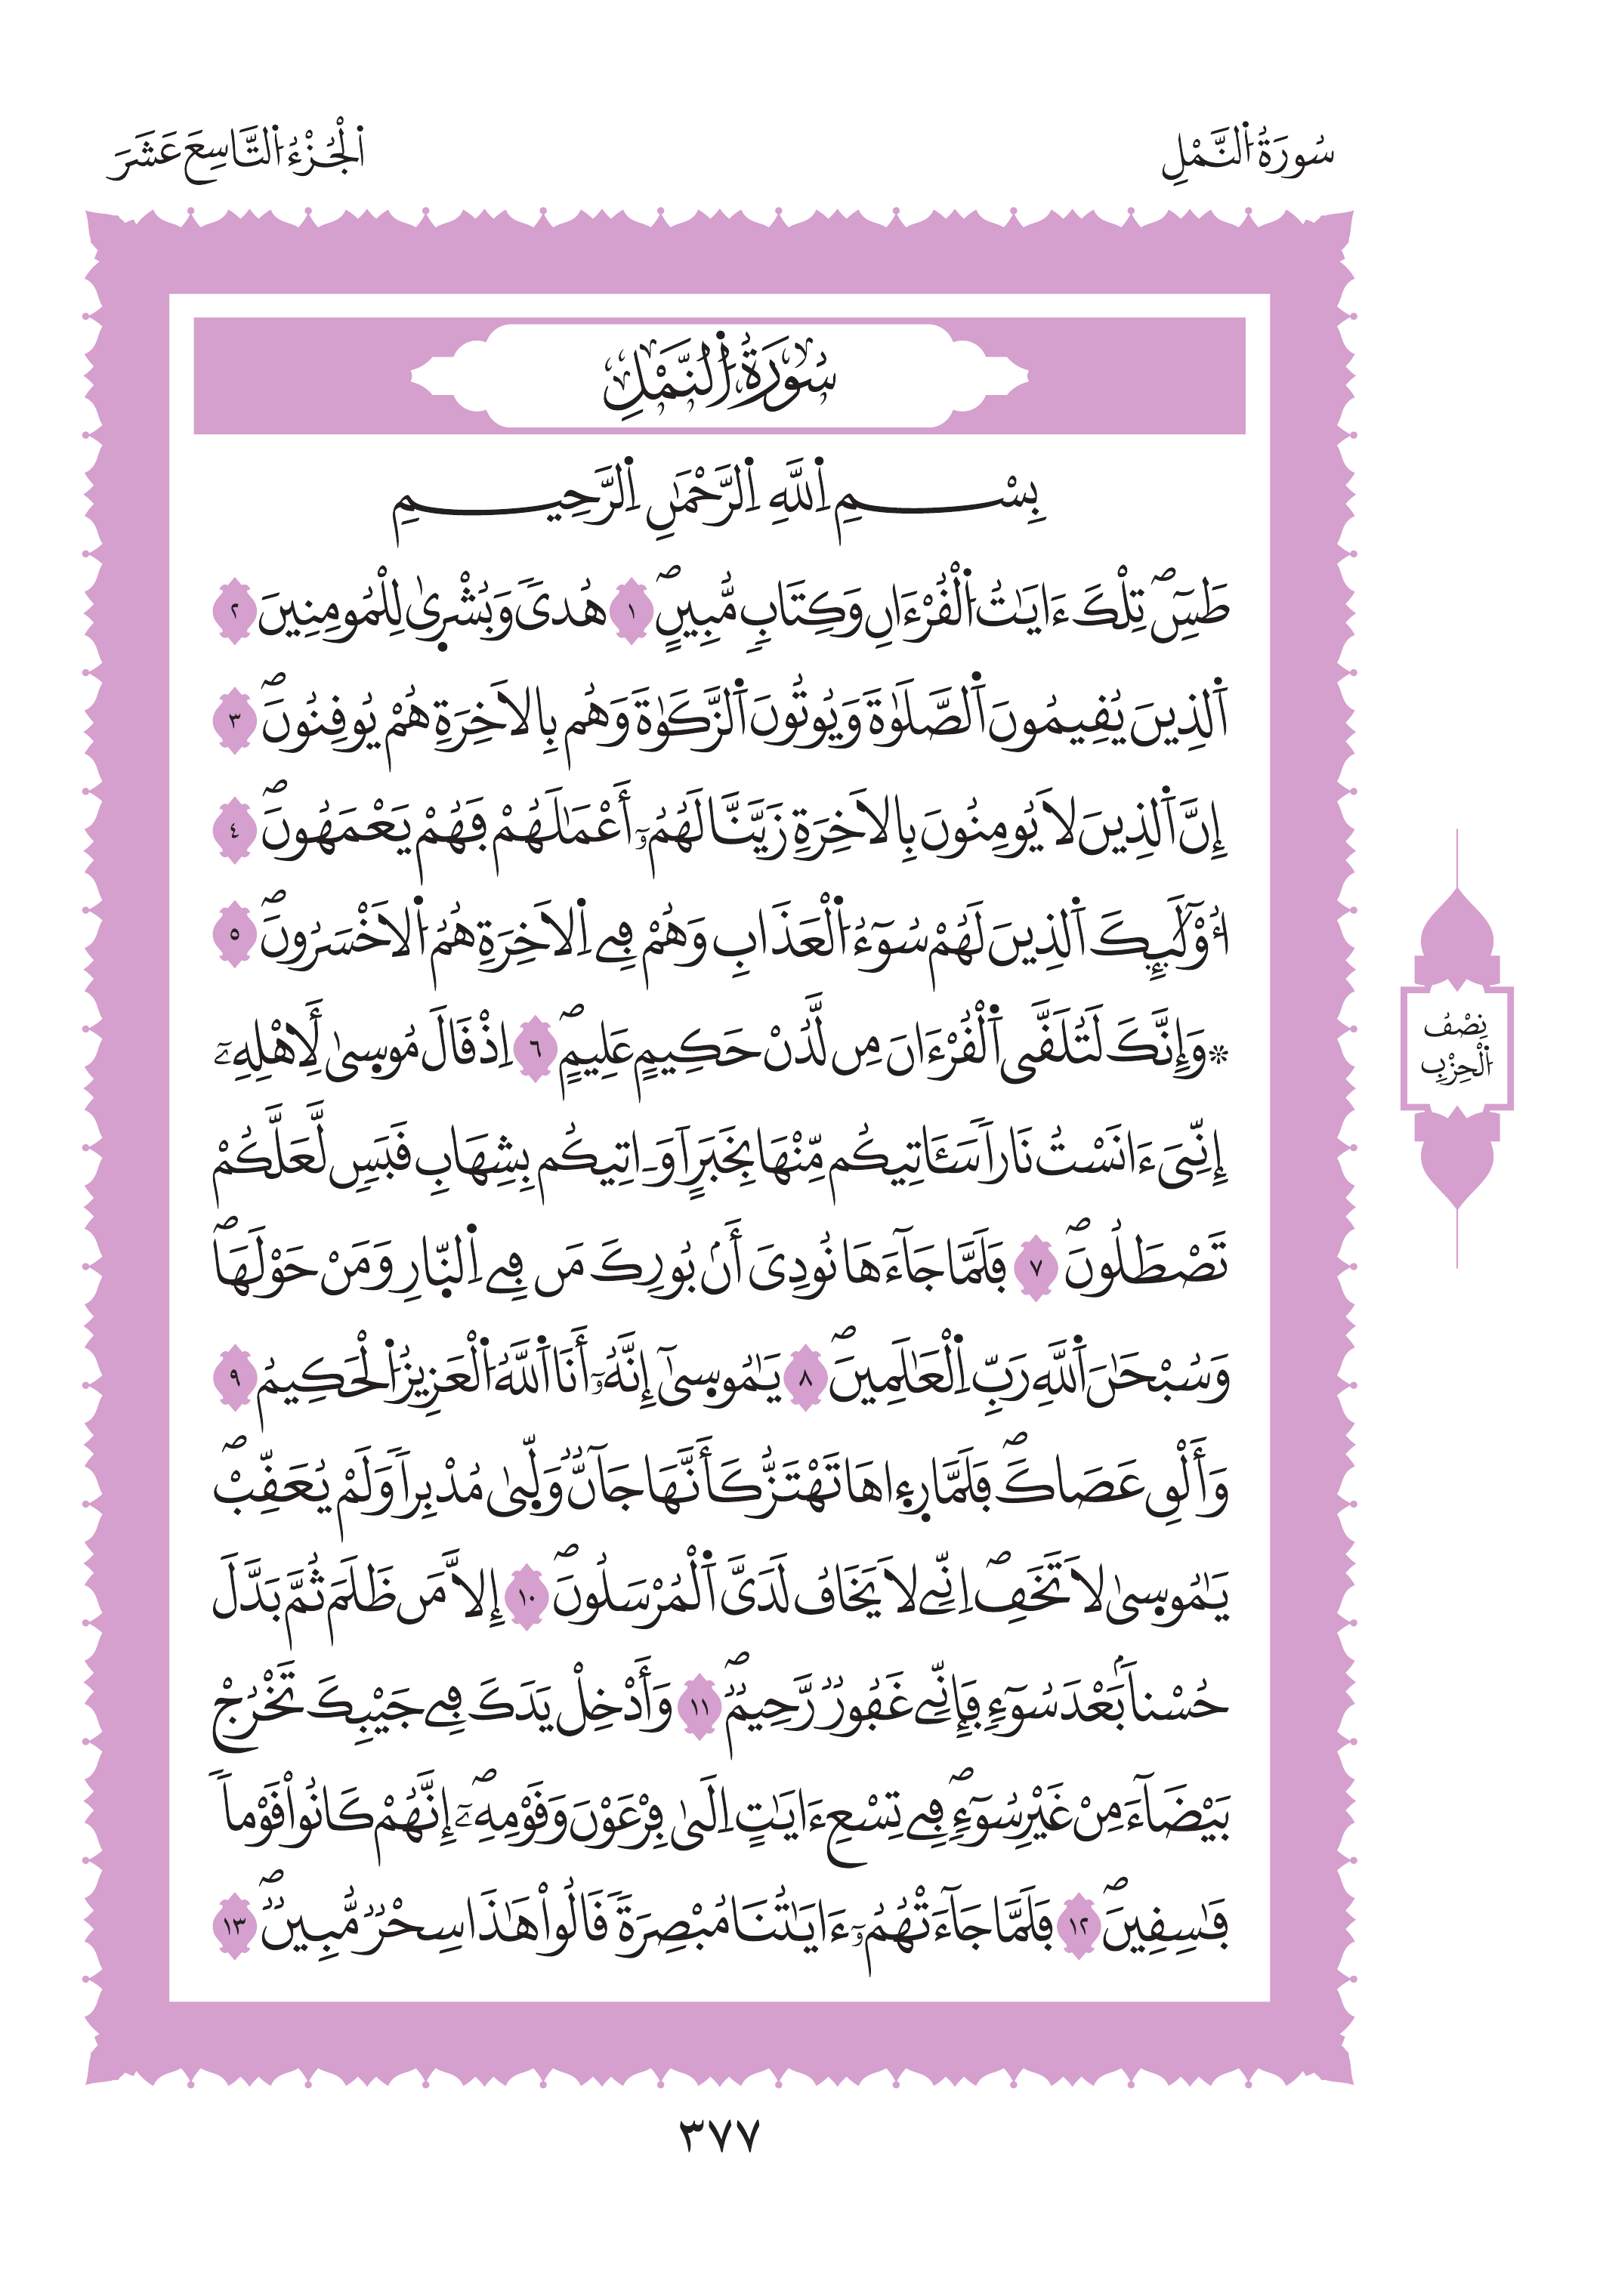 سُورَةُ اُ۬لنَّمْلِ
اَ۬لْجُزْءُ اُ۬لتَّاسِعَ عَشَرَ
سُورَةُ اُ۬لنَّمْلِ
بِسْمِ اِ۬للَّهِ اِ۬لرَّحْمَٰنِ اِ۬لرَّحِيمِ
طَسِٓۖ تِلْكَ ءَايَٰتُ اُ۬لْقُرْءَانِ وَكِتَابٖ مُّبِينٍۖ ١ هُدىٗ وَبُشْر۪يٰ لِلْمُومِنِينَ ٢
اَ۬لذِينَ يُقِيمُونَ اَ۬لصَّلَوٰةَ وَيُوتُونَ اَ۬لزَّكَوٰةَ وَهُم بِالَاخِرَةِ هُمْ يُوقِنُونَۖ ٣
إِنَّ اَ۬لذِينَ لَا يُومِنُونَ بِالَاخِرَةِ زَيَّنَّا لَهُمُۥٓ أَعْمَٰلَهُمْ فَهُمْ يَعْمَهُونَۖ ٤
أُوْلَٰٓئِكَ اَ۬لذِينَ لَهُمْ سُوٓءُ اُ۬لْعَذَابِ وَهُمْ فِے اِ۬لَاخِرَةِ هُمُ اُ۬لَاخْسَرُونَۖ ٥
۞ وَإِنَّكَ لَتُلَقَّى اَ۬لْقُرْءَانَ مِن لَّدُنْ حَكِيمٍ عَلِيمٍۖ ٦ اِذْ قَالَ مُوس۪يٰ لِأَهْلِهِۦٓ
إِنِّيَ ءَانَسْتُ نَاراٗ سَـَٔاتِيكُم مِّنْهَا بِخَبَرٍ اَوَ اٰتِيكُم بِشِهَابِ قَبَسٖ لَّعَلَّكُمْ
تَصْطَلُونَۖ ٧ فَلَمَّا جَآءَهَا نُودِيَ أَنۢ بُورِكَ مَن فِے اِ۬لنّ۪ارِ وَمَنْ حَوْلَهَاۖ
وَسُبْحَٰنَ اَ۬للَّهِ رَبِّ اِ۬لْعَٰلَمِينَۖ ٨ يَٰمُوس۪يٰٓ إِنَّهُۥٓ أَنَا اَ۬للَّهُ اُ۬لْعَزِيزُ اُ۬لْحَكِيمُ ٩
وَأَلْقِ عَصَاكَۖ فَلَمَّا ر۪ء۪اهَا تَهْتَزُّ كَأَنَّهَا جَآنّٞ وَلّ۪يٰ مُدْبِراٗ وَلَمْ يُعَقِّبْۖ
يَٰمُوس۪يٰ لَا تَخَفِ اِنِّے لَا يَخَافُ لَدَيَّ اَ۬لْمُرْسَلُونَۖ ١٠ إِلَّا مَن ظَلَمَ ثُمَّ بَدَّلَ
حُسْناَۢ بَعْدَ سُوٓءٖ فَإِنِّے غَفُورٞ رَّحِيمٞۖ ١١ وَأَدْخِلْ يَدَكَ فِے جَيْبِكَ تَخْرُجْ
بَيْضَآءَ مِنْ غَيْرِ سُوٓءٖۖ فِے تِسْعِ ءَايَٰتٍ اِلَىٰ فِرْعَوْنَ وَقَوْمِهِۦٓۖ إِنَّهُمْ كَانُواْ قَوْماٗ
فَٰسِقِينَۖ ١٢ فَلَمَّا جَآءَتْهُمُۥٓ ءَايَٰتُنَا مُبْصِرَةٗ قَالُواْ هَٰذَا سِحْرٞ مُّبِينٞۖ ١٣
نِصْفُ
اُ۬لْحِزْبِ
٣٧٧